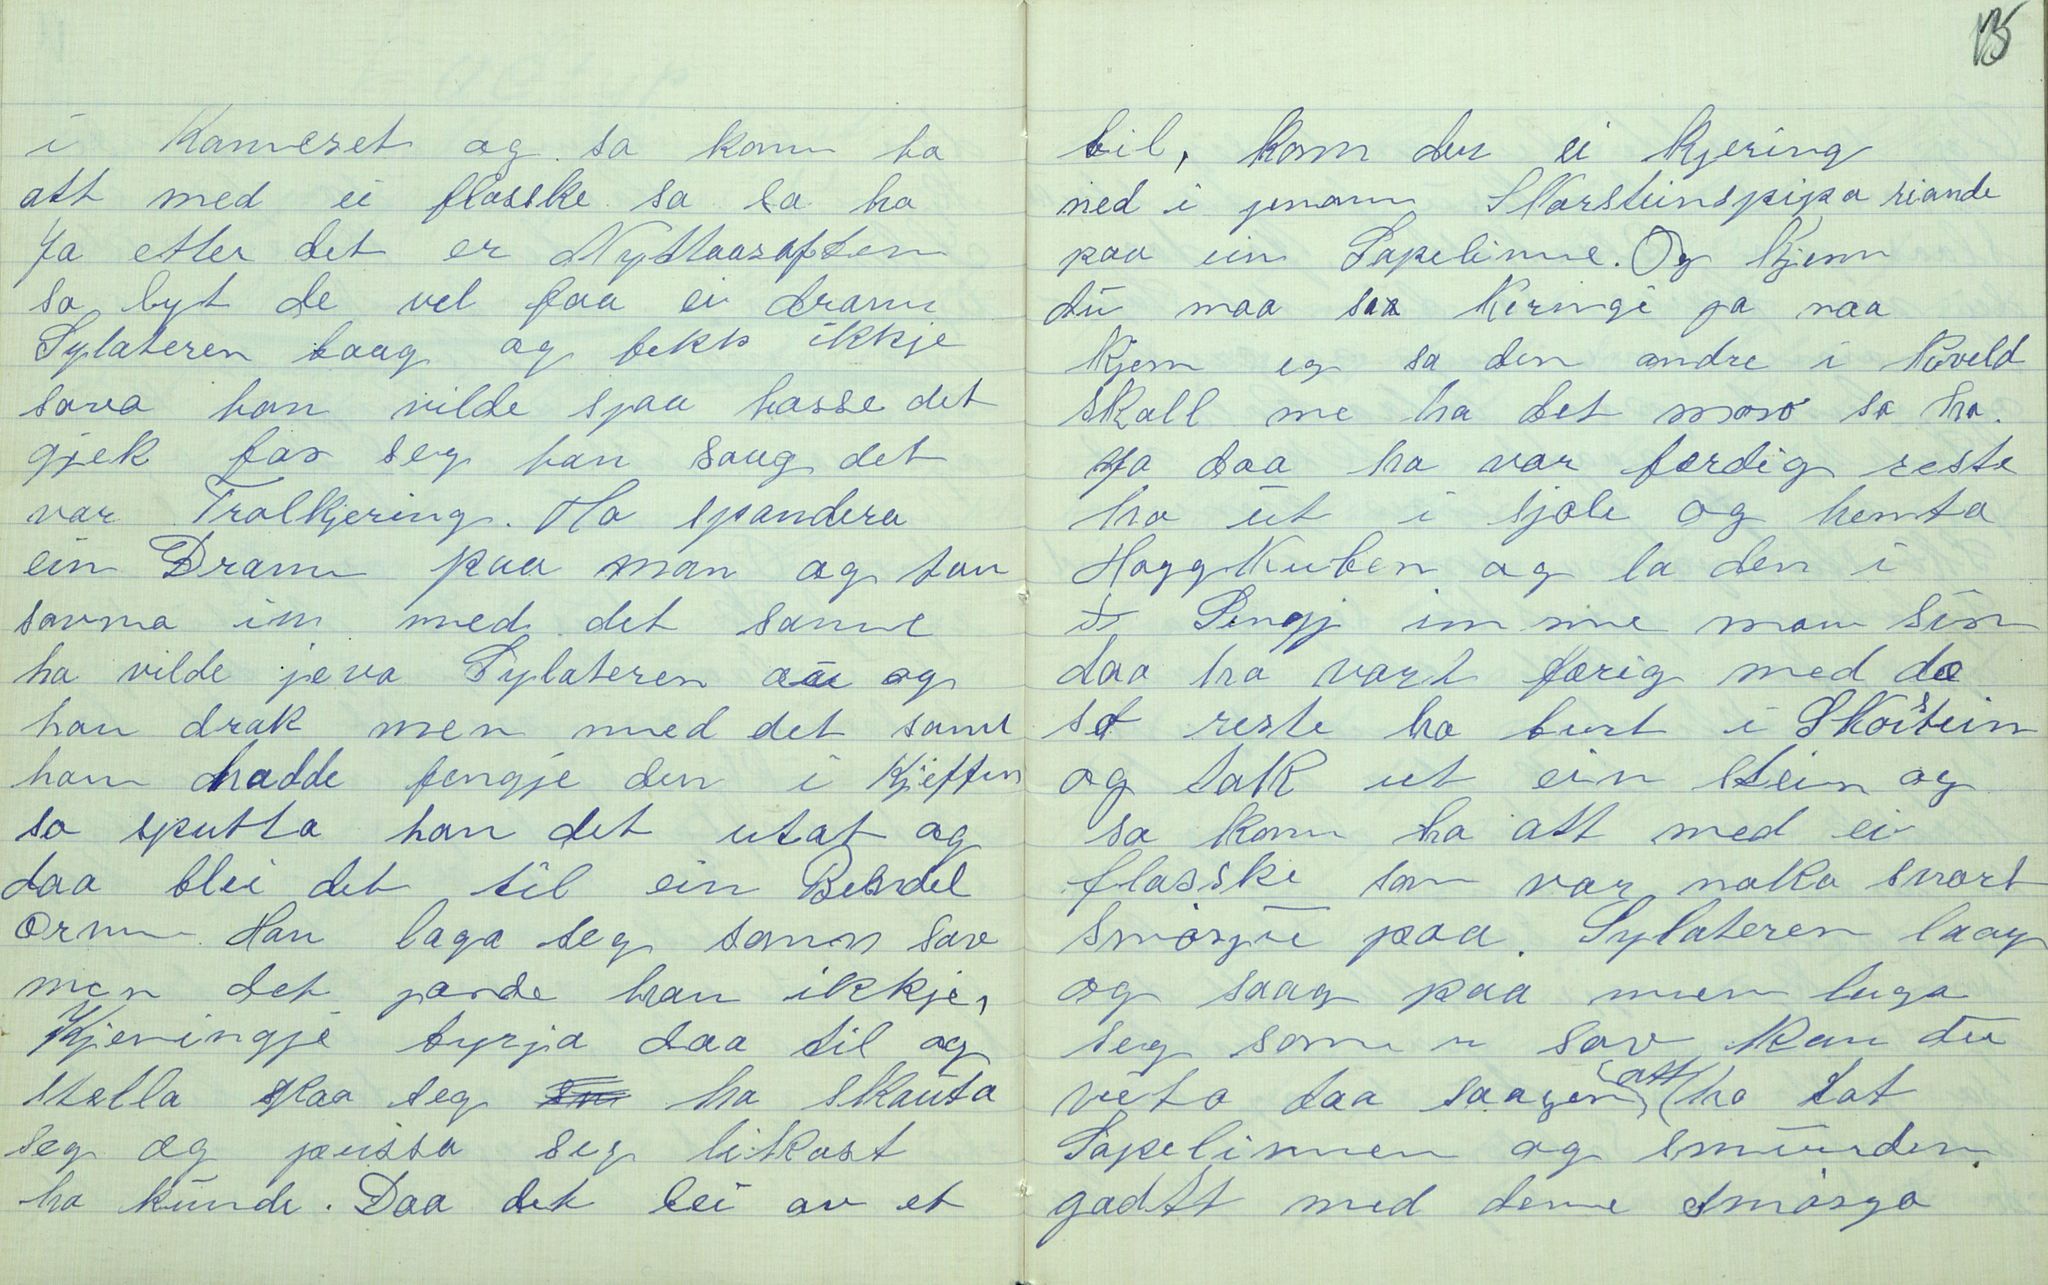 i Kameret og so kom ho
att med ei flasske so sa ho
Ja etter det er Nyttaarsaften
so byt de vel faa ei dram
Sylateren laag og fekk ikkje
sova han vilde sjaa hosse det
gjek for seg han saag det
var Trolkjering. Ho spandera
ein Dram paa man og han
sovna in med det same
ho vilde jeva Sylateren au og
han drak men med det same
han hadde fengje den i Kjeften
so sputta han det utat og
daa blei det til ein Bendel
Orm. Han laga seg somn sov
men det jorde han ikkje,
Kjeringje byrja daa til og
stella paa seg ho skauta
seg og pussa seg likast
ho kunde. Daa det lei av et
15
bil, kom der ei kjering
ned i jenom Skorsteinspipa riande
paa ein Sopelimme. Og Kjem
du maa saa Keringi ja naa
Kjem eg sa den andre i Kveld
skall me ha det moro sa ho.
Ja daa ho var ferdig reste
ho ut i sjole og henta
Hoggkuben og la den i
Sengj in me man sin
daa ho vart færig med de
so reste ho burt i Skorstein
og tok ut ein stein og
so kom ho att med ei
flasske som var noko svart
smörjie paa. Sylateren laag
og saag paa men laga
seg som n sov Kan du
veta daa saag en att ho tok
Sopelimen og smurden
godtt med dene smörja